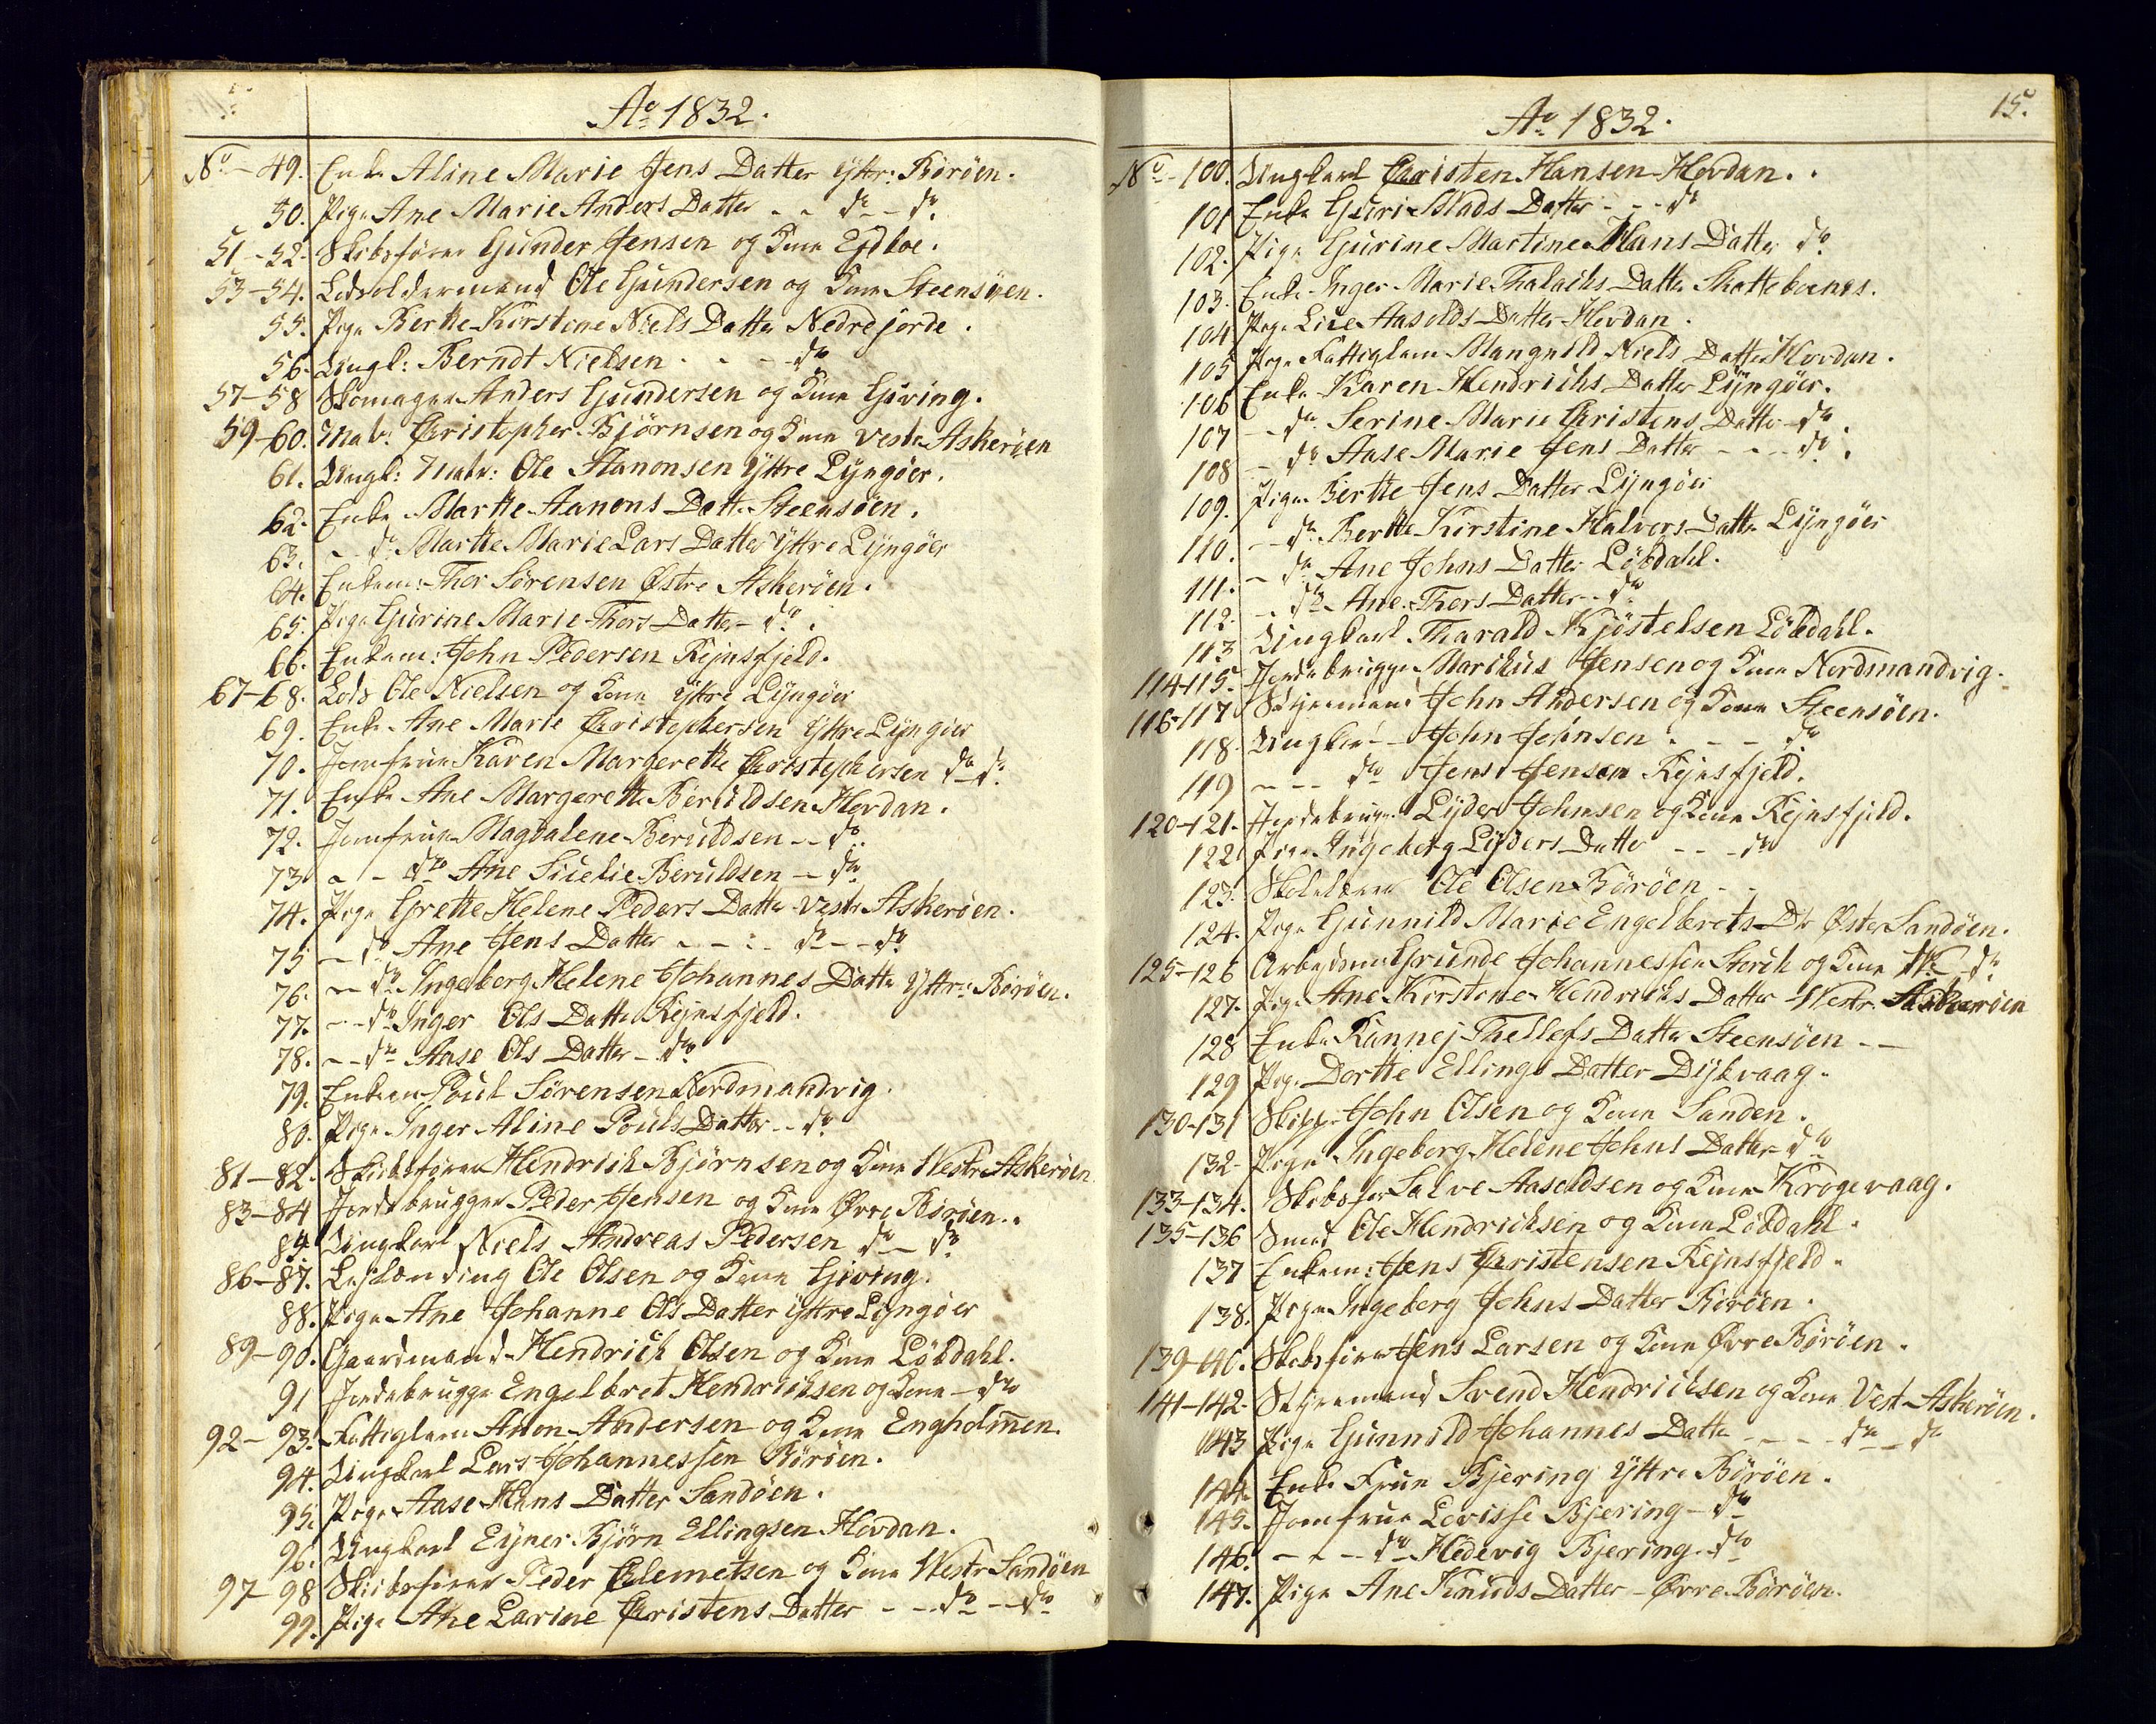 Ao 1832.
No - 49. Enke Aline Marie Jens Datter Yttr: Böröen.
50. Pige Ane Marie Anders Datter - - do - do
51-52. Skibsfører Gunder Jensen og Kone Eydboe.
53-54. Lodsoldermand Ole Gundersen og Kone Steensöen.
55. Pige Berthe Kirstene Niels Datter Nedrejorde.
56. Ungk: Berndt Nielsen - - - do
57-58 Skomager Anders Gundersen og Kone Gjeving.
59-60. Matr: Christopher Björnsen og Kone Vestr Askeröen
61. Ungk: Matr: Ole Aanonsen Yttre Lyngöer.
62. Enke Marthe Aanons Datt. Steensöen.
63. - do Marthe Marie Lars Datter Yttre Lyngöer
64. Enkem: Thor Sörensen Østre Askeröen.
65. Pige Gurine Marie Thors Datter - do.
66. Enkem: John Pedersen Rejnsfjeld.
67-68. Lods Ole Nielsen og Kone Yttre Lyngöer
69. Enke Ane Marie Christophersen Yttre Lyngöer
70. Jomfrue Karen Margrethe Christophersen do do
71. Enke Ane Margerethe Beruldsen Hovdan.
72. Jomfrue Magdalene Beruldsen - - do
73 - - do Ane Sicelie Beruldsen - do
74. Pige Grethe Helene Peders Datter Vestr Askeröen.
75 - do Ane Jens Datter - - - do - - do
76. - do Ingeborg Helene Johannes Datter Yttr: Böröen.
77. - - do Inger Ols Datter Rejnsfjeld.
78. - - do Aase Ols Datter - do
79. Enkem Poul Sörensen Nordmandvig.
80. Pige Inger Aline Pouls Datter - - do
81-82. Skibsfører Hendrich Björnsen og Kone Westr Askeröen
83-84 Jordbrugger Peder Jensen og Kone Øvre Böröen.
85. Ungkarl Niels Andreas Pedersen do - do
86-87. Lejlænding Ole Olsen og Kone Gjeving.
88. Pige Ane Johanne Ols Datter Yttre Lyngöer
89-90. Gaardmand Hendrich Olsen og Kone Löbdahl.
91 Jordebrugge Engelbret Hendrichsen og Kone - do
92-93. Fattiglem Anon Andersen og Kone Engholmen.
94. Ungkarl Lars Johannessen Böröen.
95. Pige Aase Hans Datter Sandöen.
96. Ungkarl Eyner Björn Ellingsen Hovdan.
97-98 Skibsfører Peder Clemetsen og Kone Westr Sandöen
99. Pige Ane Larine Christens Datter - - do - - do
15.
Ao 1832.
No - 100. Ungkarl Christen Hansen Hovdan.
101 Enke Guri Mads Datter - - - do
102. Pige Gurine Martine Hans Datter do
103. Enke Inger Marie Thalachs Datter Skattebones.
104 Pige Lise Aasolds Datter Hovdan.
105 Pige Fattiglem Mangnild Niels Datter Hovdan.
106 Enke Karen Hendrichs Datter Lyngöer.
107 - - do Serine Marie Christens Datter do
108 - do Aase Marie Jens Datter - - - do.
109. Pige Berthe Jens Datter Lyngöer
110. - - do Berthe Kirstine Halvors Datter Lyngöer
111. - do Ane Johns Datter Löbdahl.
112. - - do Ane Thors Datter - do
113 Ungkarl Tharald Kjöstelsen Löbdahl.
114-115. Jordebrugge Marchus Jensen og Kone Nordmandvig.
116-117 Styrmand John Andersen og Kone Steensöen.
118. Ungkarl - - John Johnsen - - - do
119 - - - do Jens Jensen Rejnsfjeld.
120-121. Jordebrugge Lyder Johnsen og Kone Rejnsfjeld.
122. Pige Ingeborg Lyders Datter - - - do
123. Skolelærer Ole Olsen Böröen - -
124. Pige Gunnild Marie Engelbrets Dtr Øster Sandöen.
125-126 Arbejdsm Grunde Johannessen Storch og Kone do
127. Pige Ane Kirstene Hendrichs Datter Westr. Askeröen
128 Enke Rannej Thellefs Datter Steensöen - -
129 Pige Dorthe Ellings Datter Dykvaag.
130-131 Skipper John Olsen og Kone Sanden.
132. Pige Ingeborg Helene Johns Datter do
133-134. Skibsfør Salve Aasoldsen og Kone Krogevaag.
135-136 Smed Ole Hendrichsen og Kone Löbdahl.
137 Enkem: Jens Christensen Rejnsfjeld.
138. Pige Ingeborg Johns Datter Böröen.
139-140. Skibsfører Jens Larsen og Kone Øvre Böröen.
141-142. Styrmand Svend Hendrichsen og Kone Vest Askeröen.
143 Pige Gunnild Johannes Datter - - - - do - do
144. Enke Frue Bjering Yttre Böröen.
145. Jomfrue Lovisse Bjering - do
146. - - - do Hedevig Bjering - do
147. Pige Ane Knuds Datter - Øvre Böröen.